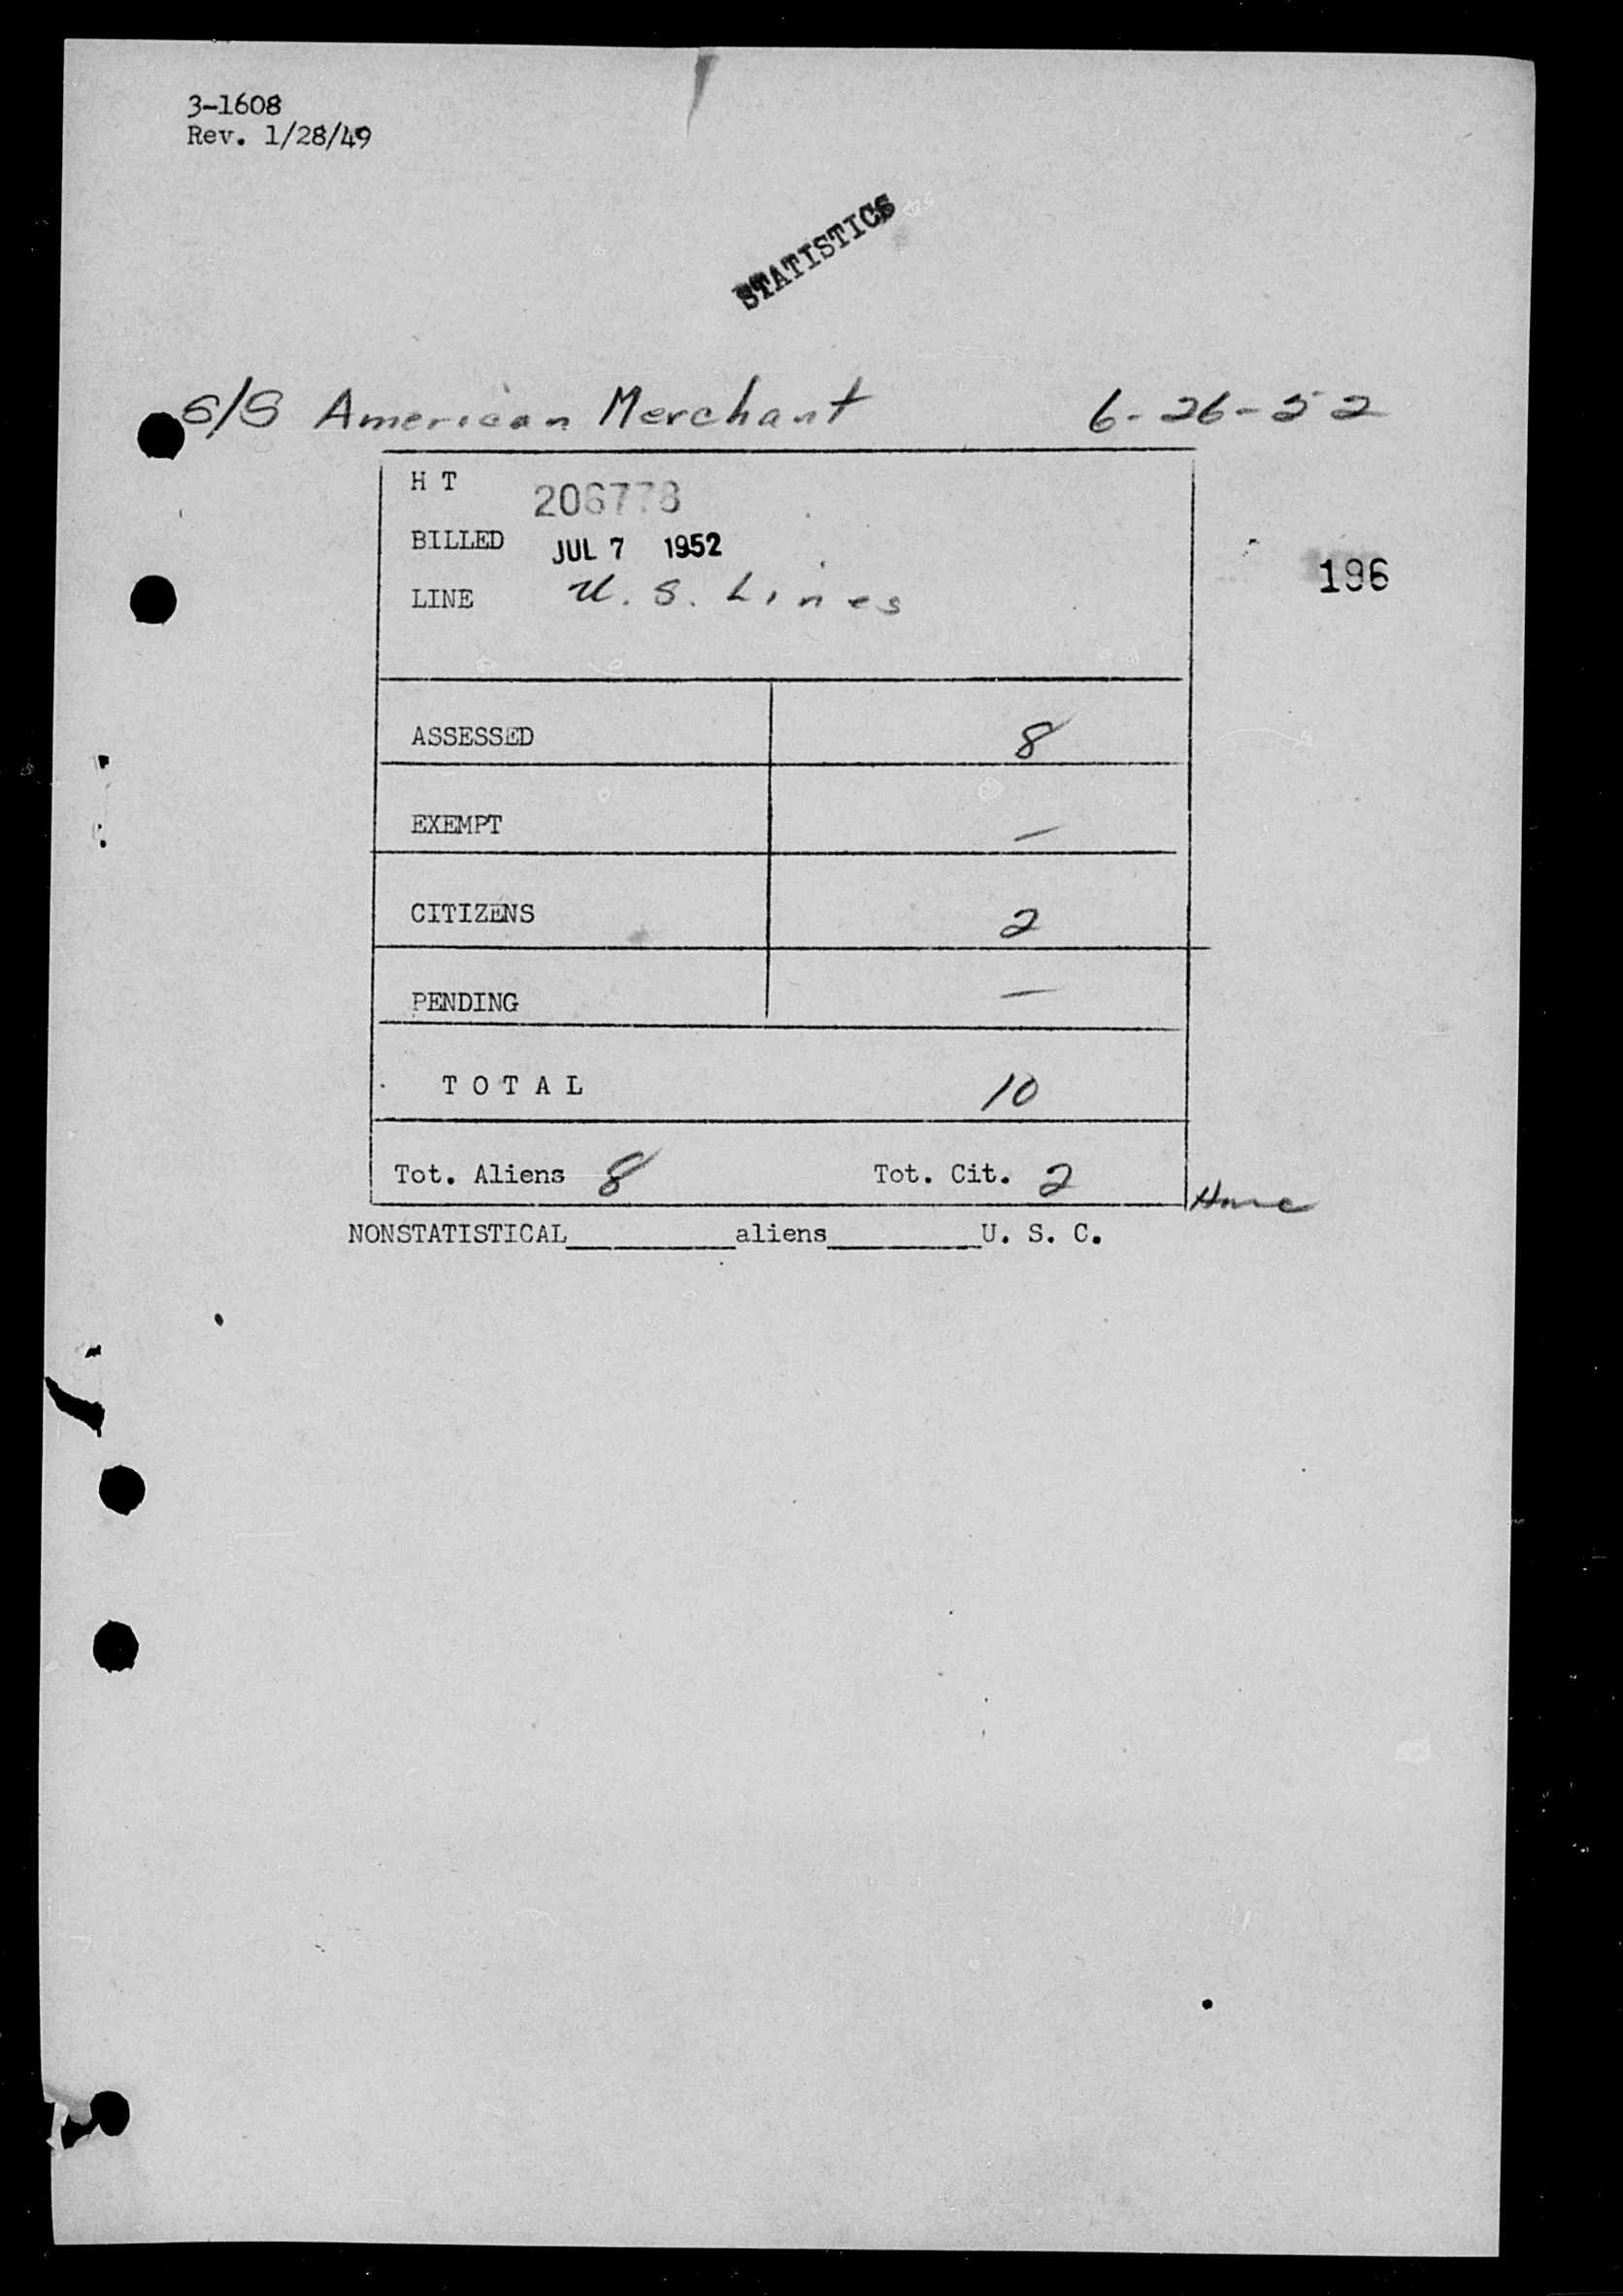 3-1608
Rev. 1/28/49
STATISTICS
S/S American Merchant 6-26-52
H T 206778
BILLED JUL 7 1952
196
LINE U.S. Lines
ASSESSED 8
EXEMPT —
CITIZENS 2
PENDING —
T O T A L 10
Tot. Aliens 8 Tot. Cit. 2
NONSTATISTICAL__________aliens__________U. S. C.